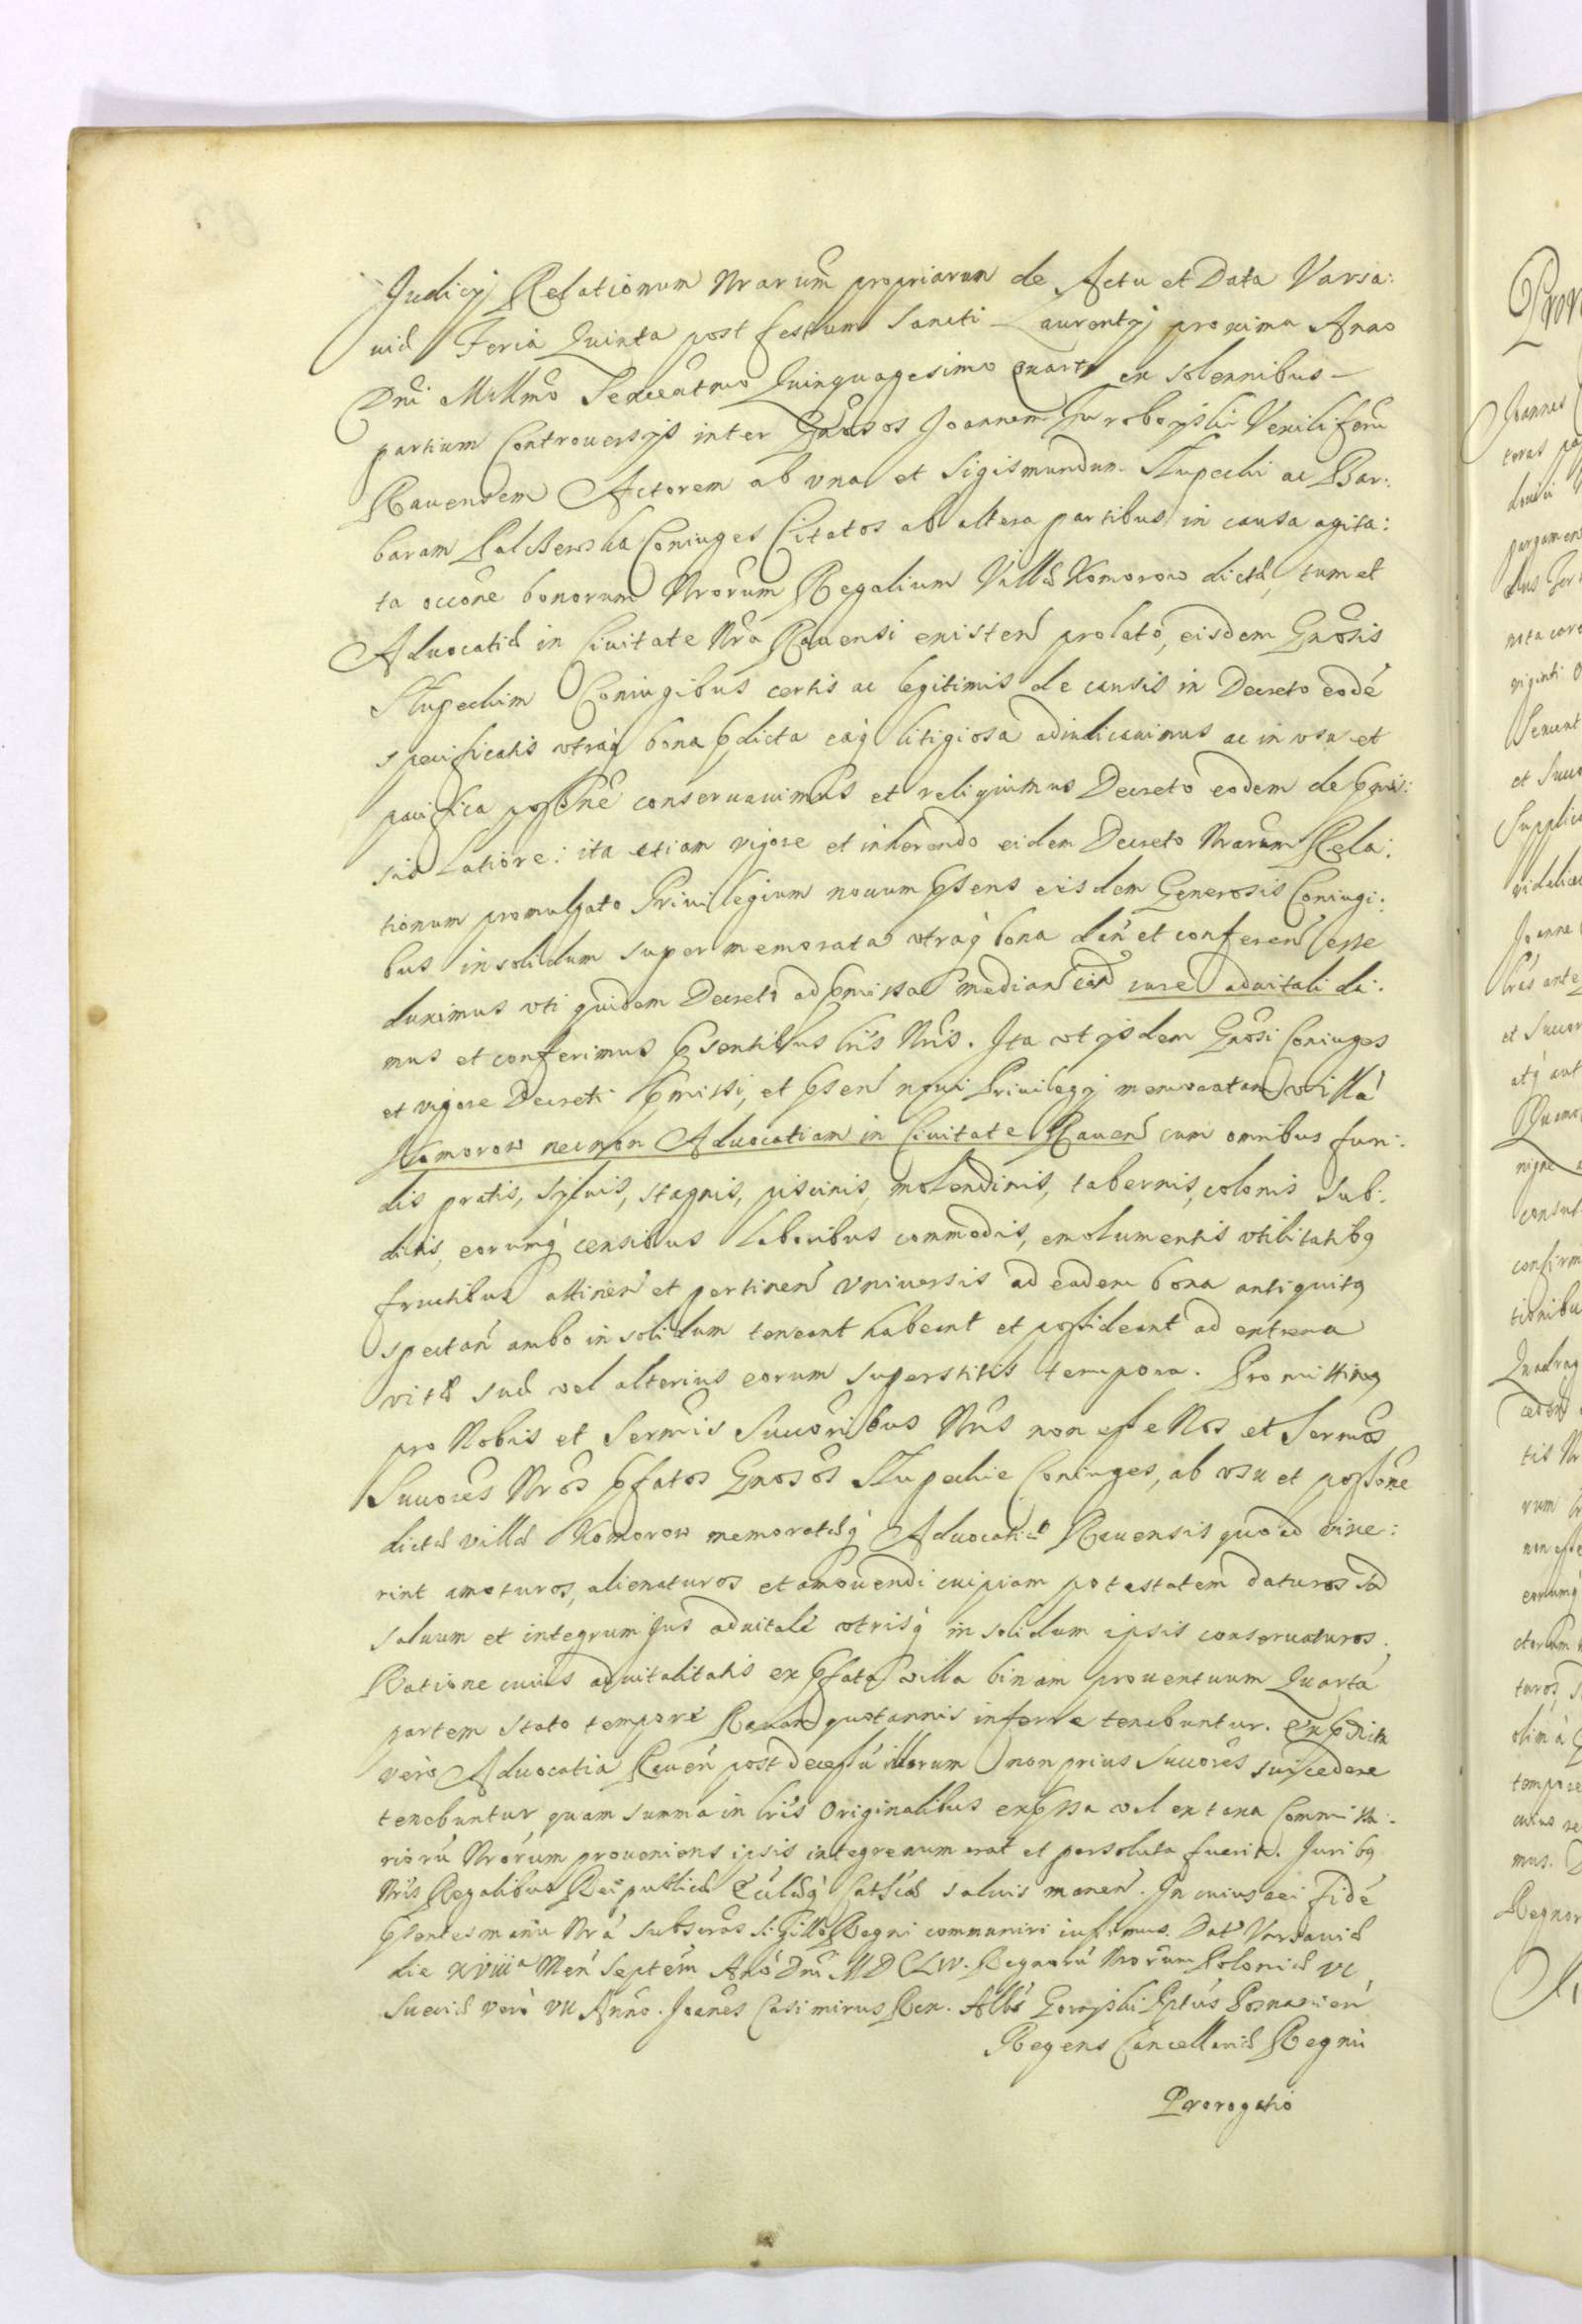 Judicÿ Relationum Nrarum propriarum de Actu et Data Varsa:
uiæ Feria Quinta post festum Sancti Laurentÿ proxima Anno
Dni Millmo Sexcentmo Quinquagesimo quarto ex solennibus
partium Controuersÿs inter Gnosos Joannem Vexiliferu
Rauensem Actorem ab vna et Sigismundum Slupecki ac Bar:
baram Coniuges Citatos ab altera partibus in causa agita:
ta occone bonorum Nrorum Regalium Villæ Komorow dictæ, tum et
Aduocatiæ in Ciuitate Nra Rauensi existen prolato, eisdem Gnosis
Slupeckim Coniugibus certis ac legitimis de causis in Decreto eodé
specificatis vtraq bona pdicta eaq litigiosa adiudicauimus ac in vsu et
pacifica possne conseruauimus et reliquimus Decreto eodem de pmis:
sis Latiore: ita etiam vigore et inherendo eidem Decreto Nrarum Rela:
tionum promulgato Priuilegium nouum psens eisdem Generosis Coniugi:
bus insolidum super memorata vtraq bona dan et conferen esse
duximus vti quidem Decreto ad pmissa median eisd iure aduitali da:
mus et conferimus psentibus lris Nris. Ita vt ÿsdem Gnosi Coniuges
et vigore Decreti pmissi, et psen noui Priuilegÿ memoratam villá
Komorow necnon Aduocatiam in Ciuitate Rauen cum omnibus fun:
dis pratis, syluis, stagnis, piscinis, molendinis, tabernis, colonis sub:
ditis, eorumq censibus laboribus commodis, emolumentis vtilitatibq
fructibus attinen et pertinen vniuersis ad eadem bona antiquitq
spectan ambo in solidum teneant habeant et possideant ad extrema
vitæ suæ vel alterius eorum superstitis tempora. Promittimq
pro Nobis et Sermis Succoribus Nris non esse Nos et Sermos
Succores Nros pfatos Gnosos Slupeckie Coniuges, ab vsu et possone
dictæ villæ Komorow memoratæq Aduocatiæ Rauensis quoad vixe:
rint amoturos, alienaturos et amouendi cuipiam potestatem daturos sed
saluum et integrum Jus aduitale vtrisq in solidum ipsis conseruaturos.
Ratione cuius aduitalitatis ex pfata villa binam prouentuum Quartá
partem stato tempore Rauam quotannis inferre tenebuntur. Ex pdicta
vero Aduocatia Rauen post decessu illorum non prius Succores succedere
tenebuntur, quam summa in lris Originalibus expssa vel ex taxa Commissa:
rioru Nrorum proueniens ipsis integre numerat et persoluta fuerit. Juribq
Nris Regalibus Reipublicæ Ecclæq Catlicæ saluis manen. In cuius rei fidé
psentes manu Nra subscras Sigillo Regni communiri iussimus. Dat Varsauiæ
die xviiia Men Septem Ano Dni MDCLIV. Regnoru Nrorum Poloniæ VI
Sueciæ vero VII Anno. Joanes Casimirus Rex. Albs Gorayski Pptus Posnanien
Regens Cancellariæ Regni
Prorogatio